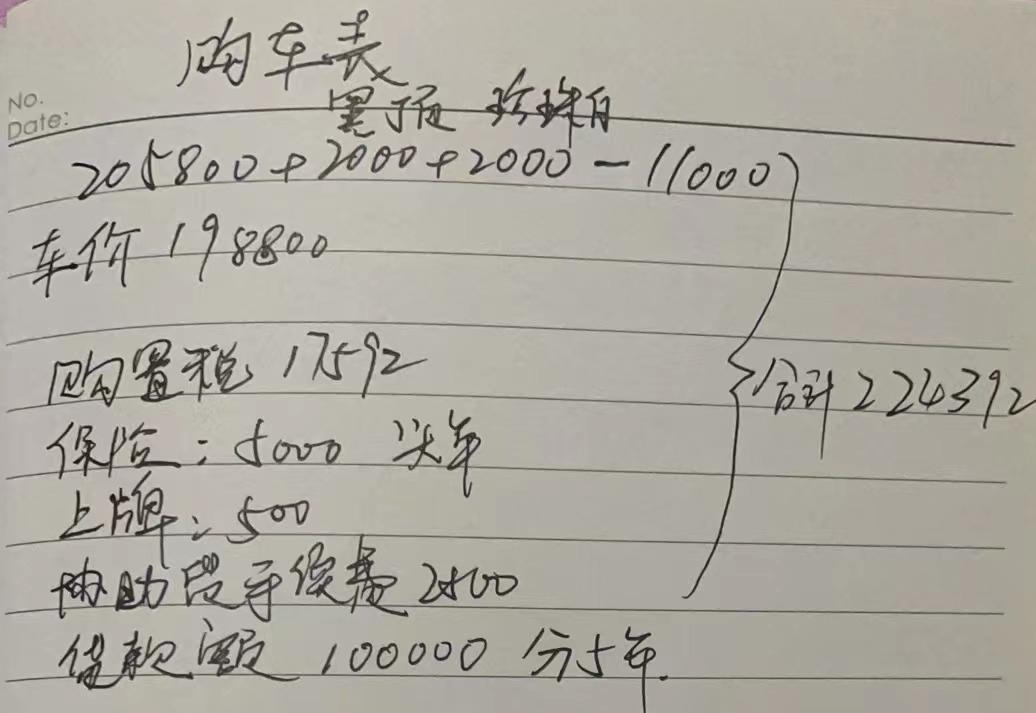 购车表
No.
Date:
黑顶 珍珠白
205800+2000+2000-11000
车价 198800
购置税 17592
合计 224392
保险:5000 头年
上牌:500
协助贷手续费 2500
贷款额 100000 分5年.